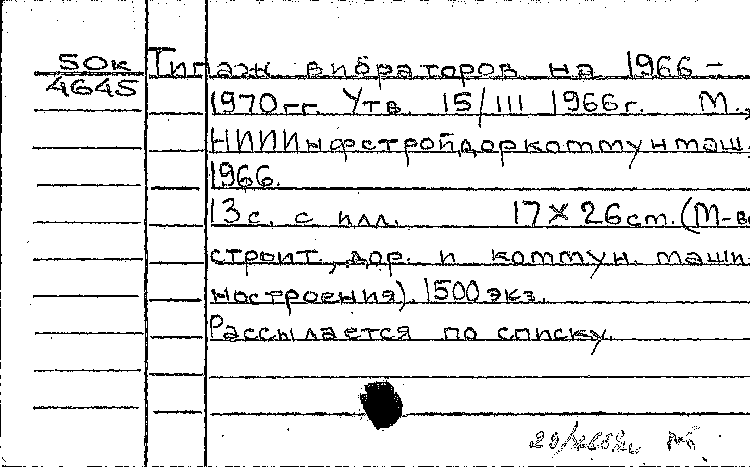 50к Типаж вибраторов на 1966-
4645 1970гг. Утв. 15/III 1966г. М.,
НИИИнфстройдоркоммунмаш.
1966.
13с. с илл. 17×26cm. (М-во
строит, дор. и коммун. маши-
ностроения). 1500 экз.
Рассылается по списку.